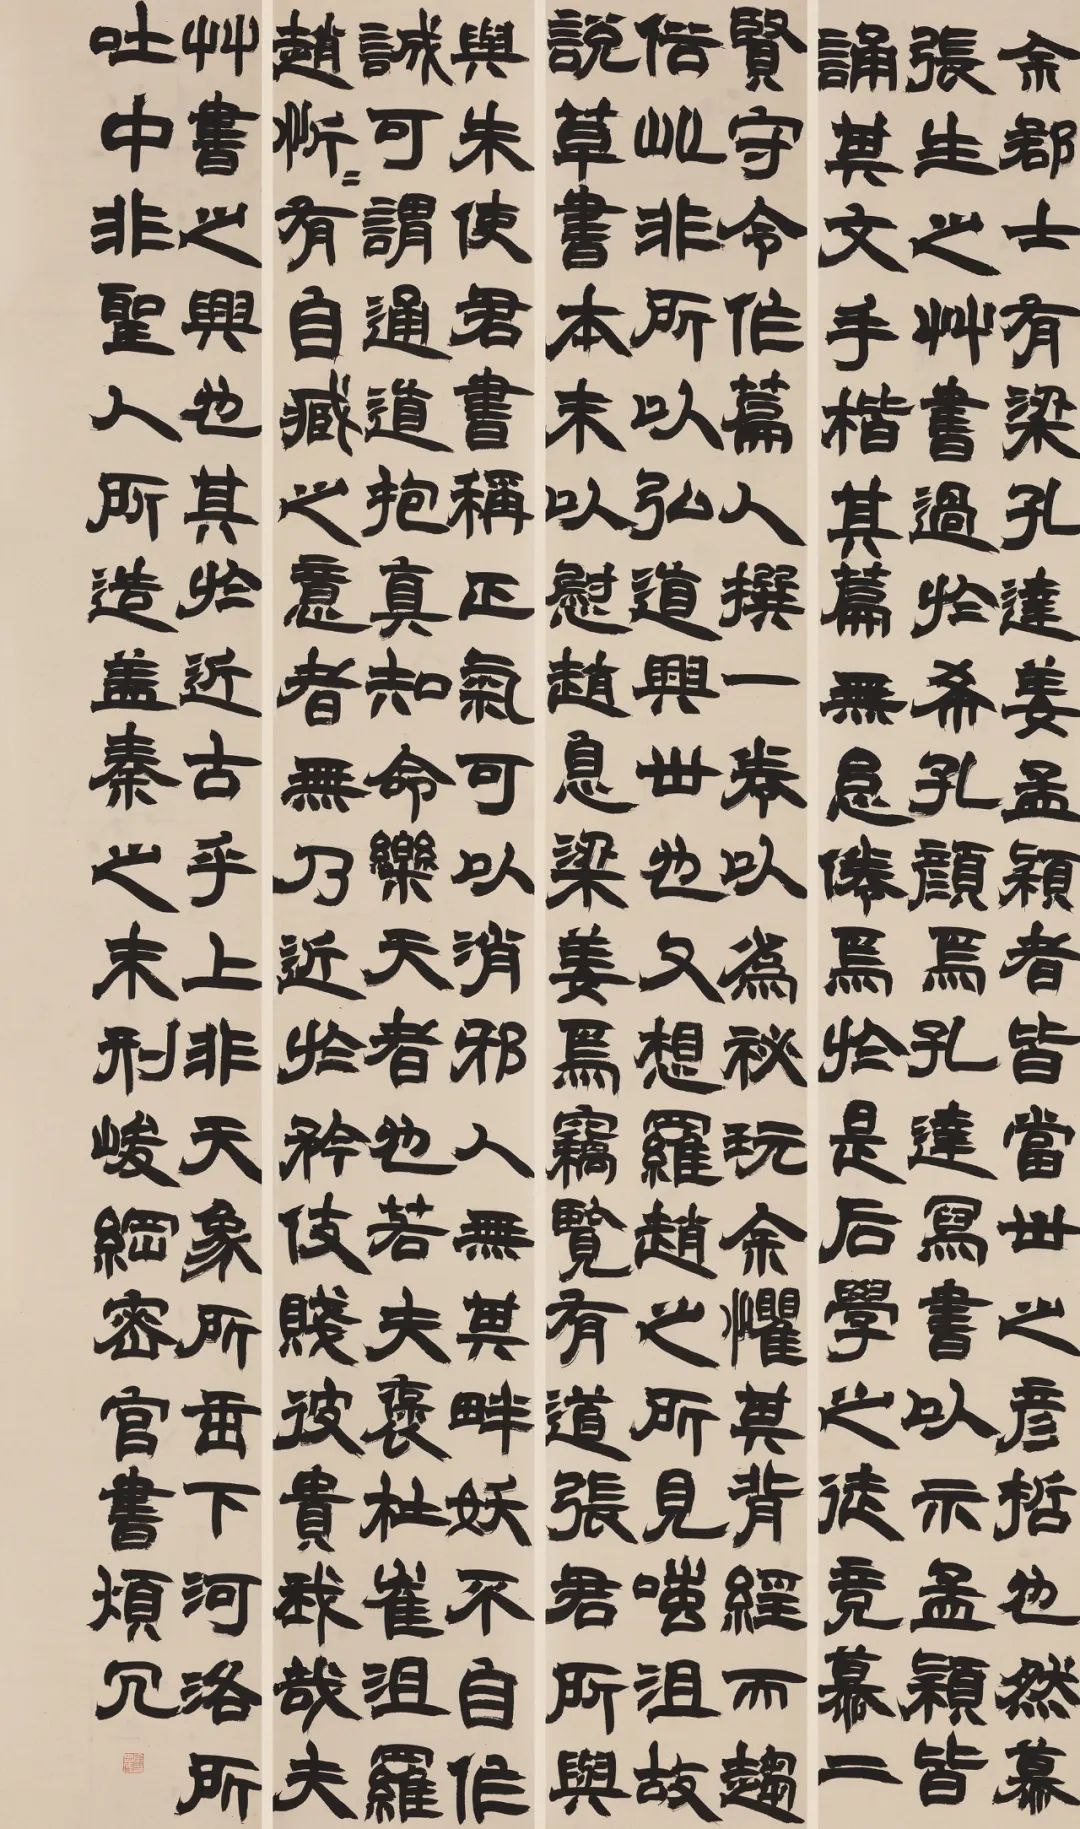 余郡士有梁孔達姜孟穎者皆當世之彥哲也然慕
張生之艸書過於希孔顏焉孔達寫書以示孟穎皆
誦其文手楷其篇無怠倦焉於是后學之徒竞慕二
賢守令作篇人撰一卷以為祕玩余懼其背經而趨
俗此非所以弘道興世也又想羅趙之所見嗤沮故
說草書本末以慰趙息梁姜焉竊覽有道張君所與
與朱使君書稱正氣可以消邪人無其畔妖不自作
誠可謂通道抱真知命樂天者也若夫褒杜崔沮羅
趙忻〻有自臧之意者無乃近於矜伎賤彼貴我哉夫
艸書之興也其於近古乎上非天象所垂下河洛所
吐中非聖人所造盖秦之末刑峻網密官書煩冗